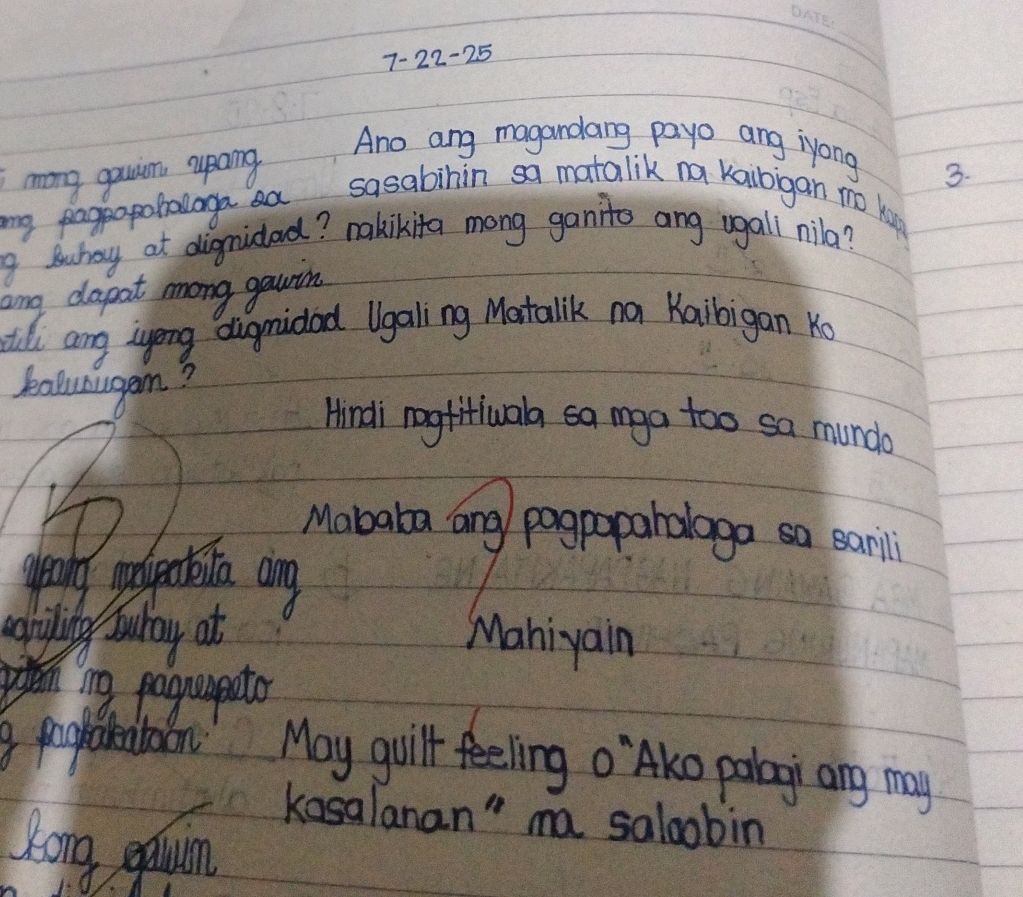 DATE:
7-22-25
mong gawin upang
ang pagpapahalaga sa
buhay at dignidad?
ang dapat mong gawin
ang iyong dignidad
kalusugan?
upang maipakita ang
sariling buhay at
ng pagrespeto
pagkakataon.
kong gawin
Ano ang magandang payo ang iyong
sasabihin sa matalik na kaibigan mo
nakikita mong ganito ang ugali nila?
Ugali ng Matalik na Kaibigan Ko
Hindi nagtitiwala sa mga tao sa mundo
Mababa ang pagpapahalaga sa sarili
Mahiyain
May guilt feeling o "Ako palagi ang may
kasalanan" na saloobin
3.